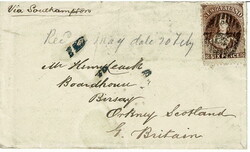 Via Southampton
Rec 1 May date 20 Feby
Mr Henry Leask
Boardhouse
Birsay
Orkney Scotland
G. Britain